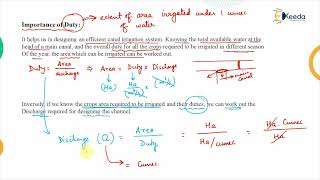 Importance of Duty:
→ extent of area irrigated under 1 cumec of water
Keeda
It helps us in designing an efficient canal irrigation system. Knowing the total available water at the
head of a main canal, and the overall duty for all the crops required to be irrigated in different season
Of the year, the area which can be irrigated can be worked out.
Duty = Area / discharge ⇒ Area = Duty × Discharge
(Ha) Ha/(m³/s) (m³/s)
Inversely, if we know the crops area required to be irrigated and their duties, we can work out the
Discharge required for designing the channel.
Discharge (Q) = Area / Duty = Ha / Ha/cumec = Ha · cumec / Ha
= Cumec